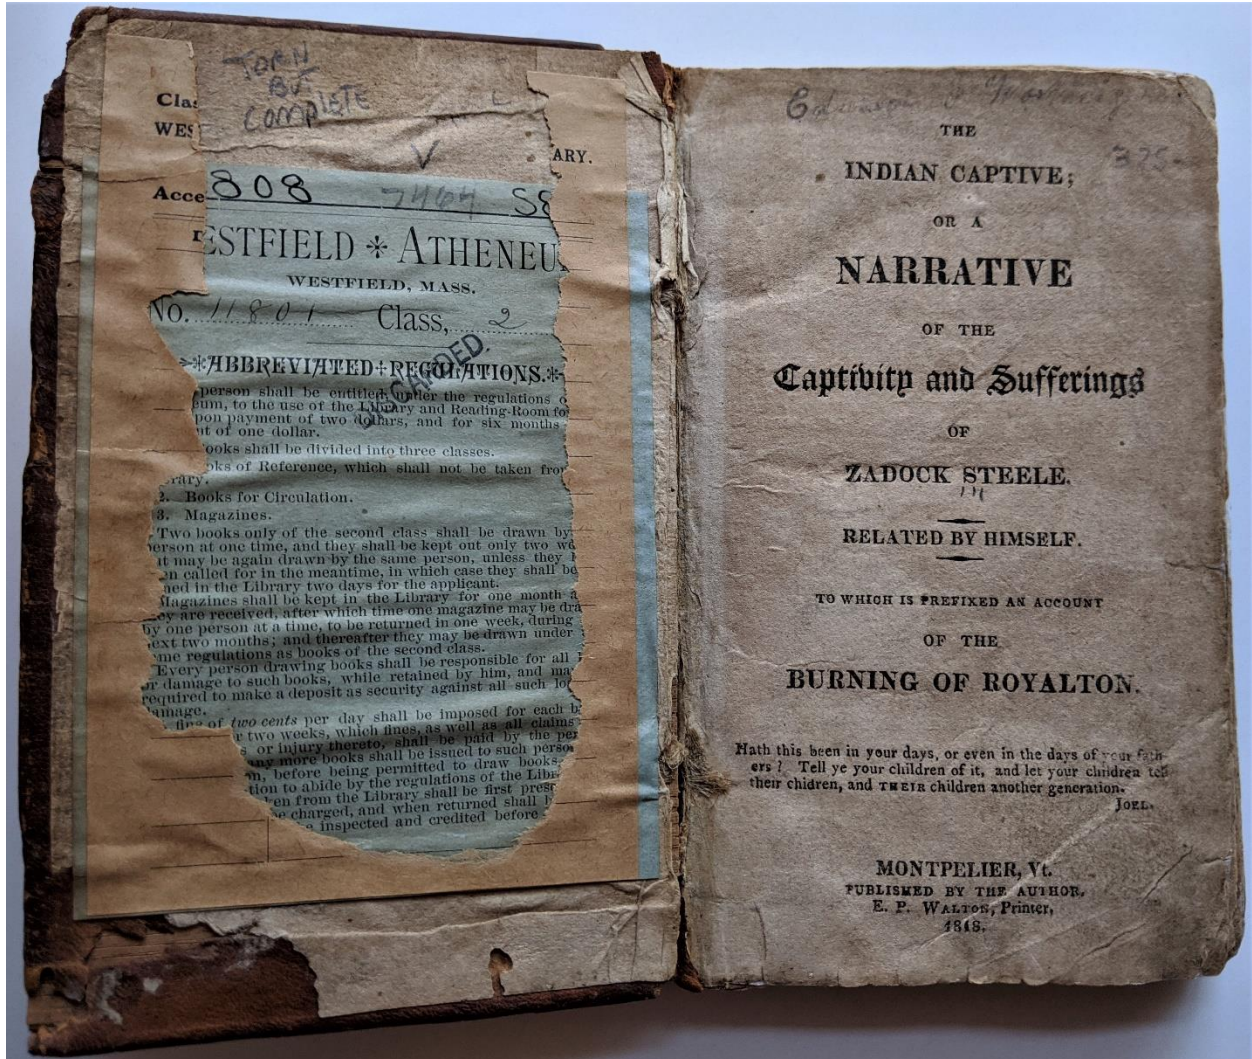 TORN
BUT
COMPLETE
Clas
WES
ARY.
Acce 808 7464 S8
ESTFIELD * ATHENEU
WESTFIELD, MASS.
No. 11801 Class, 2
ABBREVIATED REGULATIONS.
DISCARDED.
person shall be entitled, under the regulations o
eum, to the use of the Library and Reading-Room fo
pon payment of two dollars, and for six months
nt of one dollar.
ooks shall be divided into three classes.
oks of Reference, which shall not be taken from
rary.
2. Books for Circulation.
3. Magazines.
Two books only of the second class shall be drawn by
erson at one time, and they shall be kept out only two we
ut may be again drawn by the same person, unless they h
en called for in the meantime, in which case they shall be
ned in the Library two days for the applicant.
Magazines shall be kept in the Library for one month a
ey are received, after which time one magazine may be dra
by one person at a time, to be returned in one week, during
ext two months; and thereafter they may be drawn under
me regulations as books of the second class.
Every person drawing books shall be responsible for all
or damage to such books, while retained by him, and ma
required to make a deposit as security against all such lo
amage.
fine of two cents per day shall be imposed for each b
r two weeks, which fines, as well as all claims
s or injury thereto, shall be paid by the per
any more books shall be issued to such perso
on, before being permitted to draw books
tion to abide by the regulations of the Libr
en from the Library shall be first prese
be charged, and when returned shall b
inspected and credited before
375-
THE
INDIAN CAPTIVE;
OR A
NARRATIVE
OF THE
Captivity and Sufferings
OF
ZADOCK STEELE.
RELATED BY HIMSELF.
TO WHICH IS PREFIXED AN ACCOUNT
OF THE
BURNING OF ROYALTON.
Hath this been in your days, or even in the days of your fath-
ers? Tell ye your children of it, and let your children tell
their chidren, and THEIR children another generation.
JOEL.
MONTPELIER, Vt.
PUBLISHED BY THE AUTHOR.
E. P. WALTON, Printer,
1818.